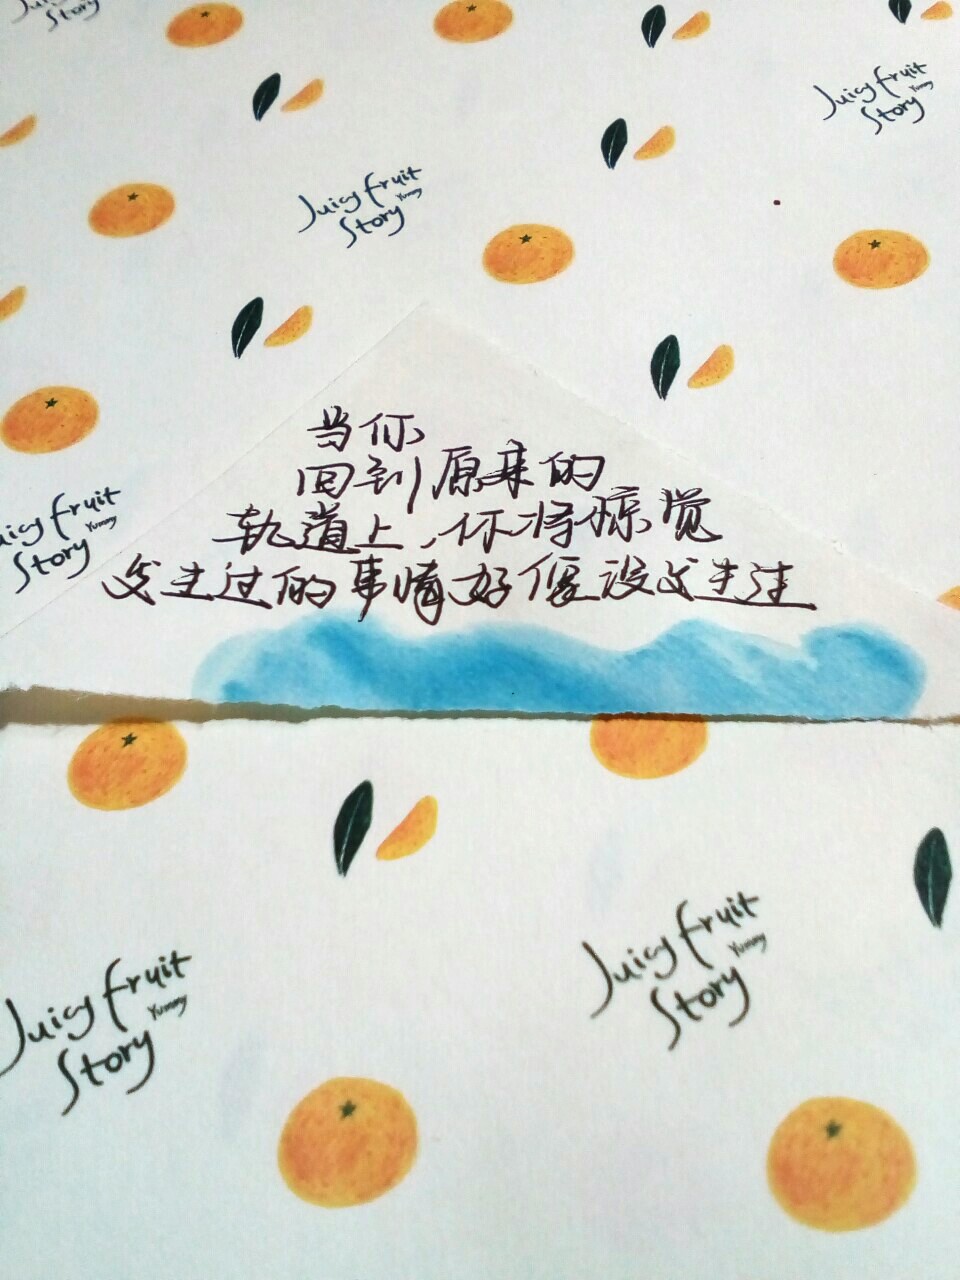 Juicy fruit
Story
Juicy fruit
Yummy
Story
Juicy fruit
Yummy
Story
当你
回到原来的
轨道上,你将惊觉
发生过的事情好像没发生过
Juicy fruit
Yummy
Story
Juicy fruit
Yummy
Story
Juicy fruit
Yummy
Story